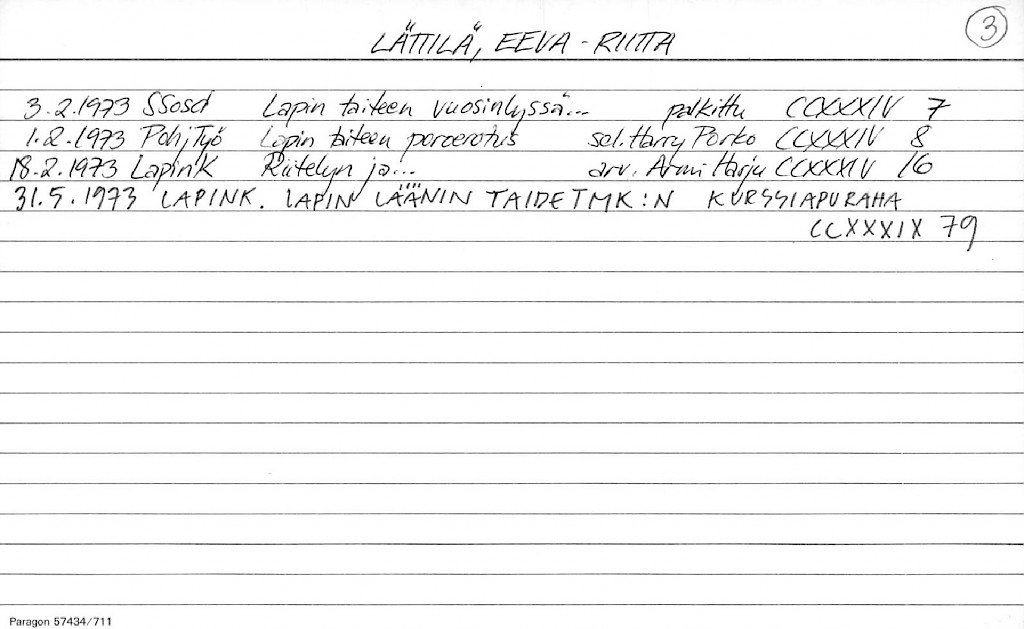 LÄTTILÄ, EEVA-RIITTA
3
3.2.1973 SSosd Lapin taiteen vuosinäyssä... palkittu CCXXXIV 7
1.2.1973 PohjTyö Lapin taiteen porcerotus sel. Harry Porko CCXXXIV 8
18.2.1973 LapinK Riitelyn ja... arv. Armi Harju CCXXXIV 16
31.5.1973 LAPINK. LAPIN LÄÄNIN TAIDETMK:N KURSSIAPURAHA
CCXXXIX 79
Paragon 57434/711